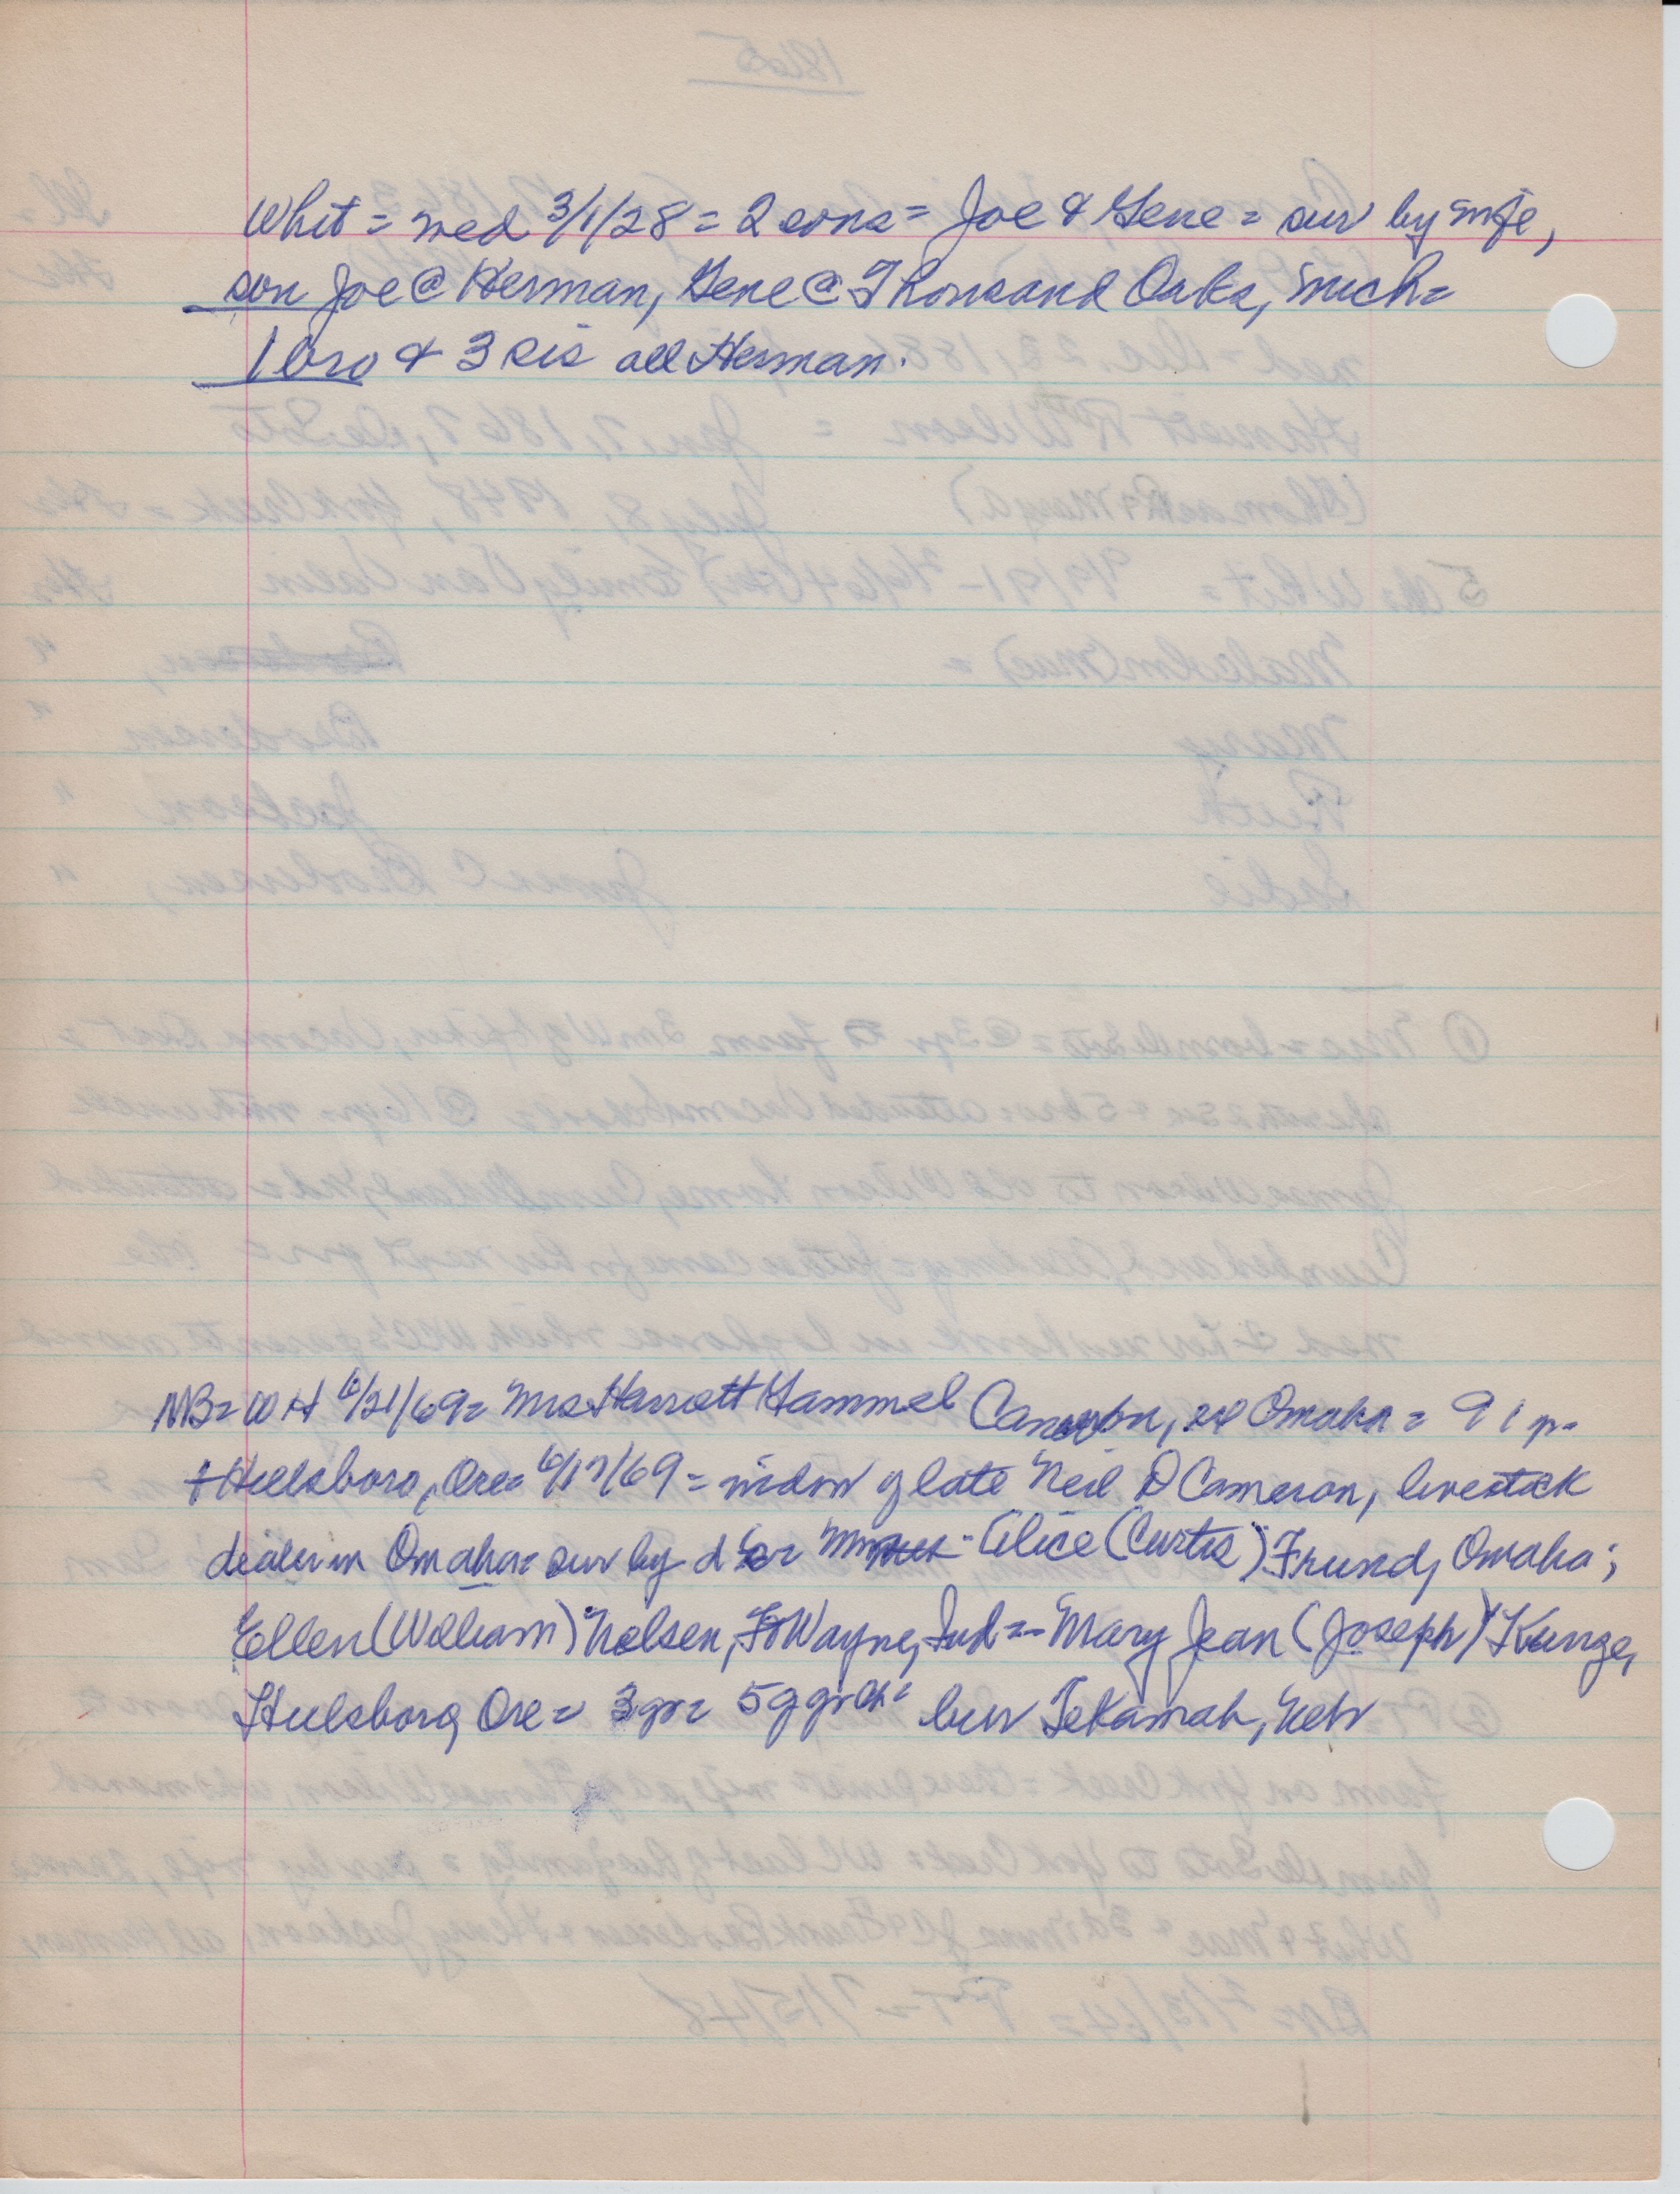 Whit = wed 3/1/28 = 2 sons = Joe & Gene = sur by wife,
son Joe @ Herman, Gene @ Thousand Oaks, Mich =
1 bro & 3 sis all Herman.
NB = WH 6/21/69 = Mrs Harriett Gammel Cameron, Omaha = 91 yr =
+ Hillsboro, Ore = 6/17/69 = widow of late Neil D Cameron, livestock
dealer in Omaha = sur by d = Alice (Curtis) Frund, Omaha;
Ellen (William) Nelsen, Ft Wayne, Ind = Mary Jean (Joseph) Kunze,
Hillsboro, Ore = 3 gr = 5 ggrch = bur Tekamah, Neb